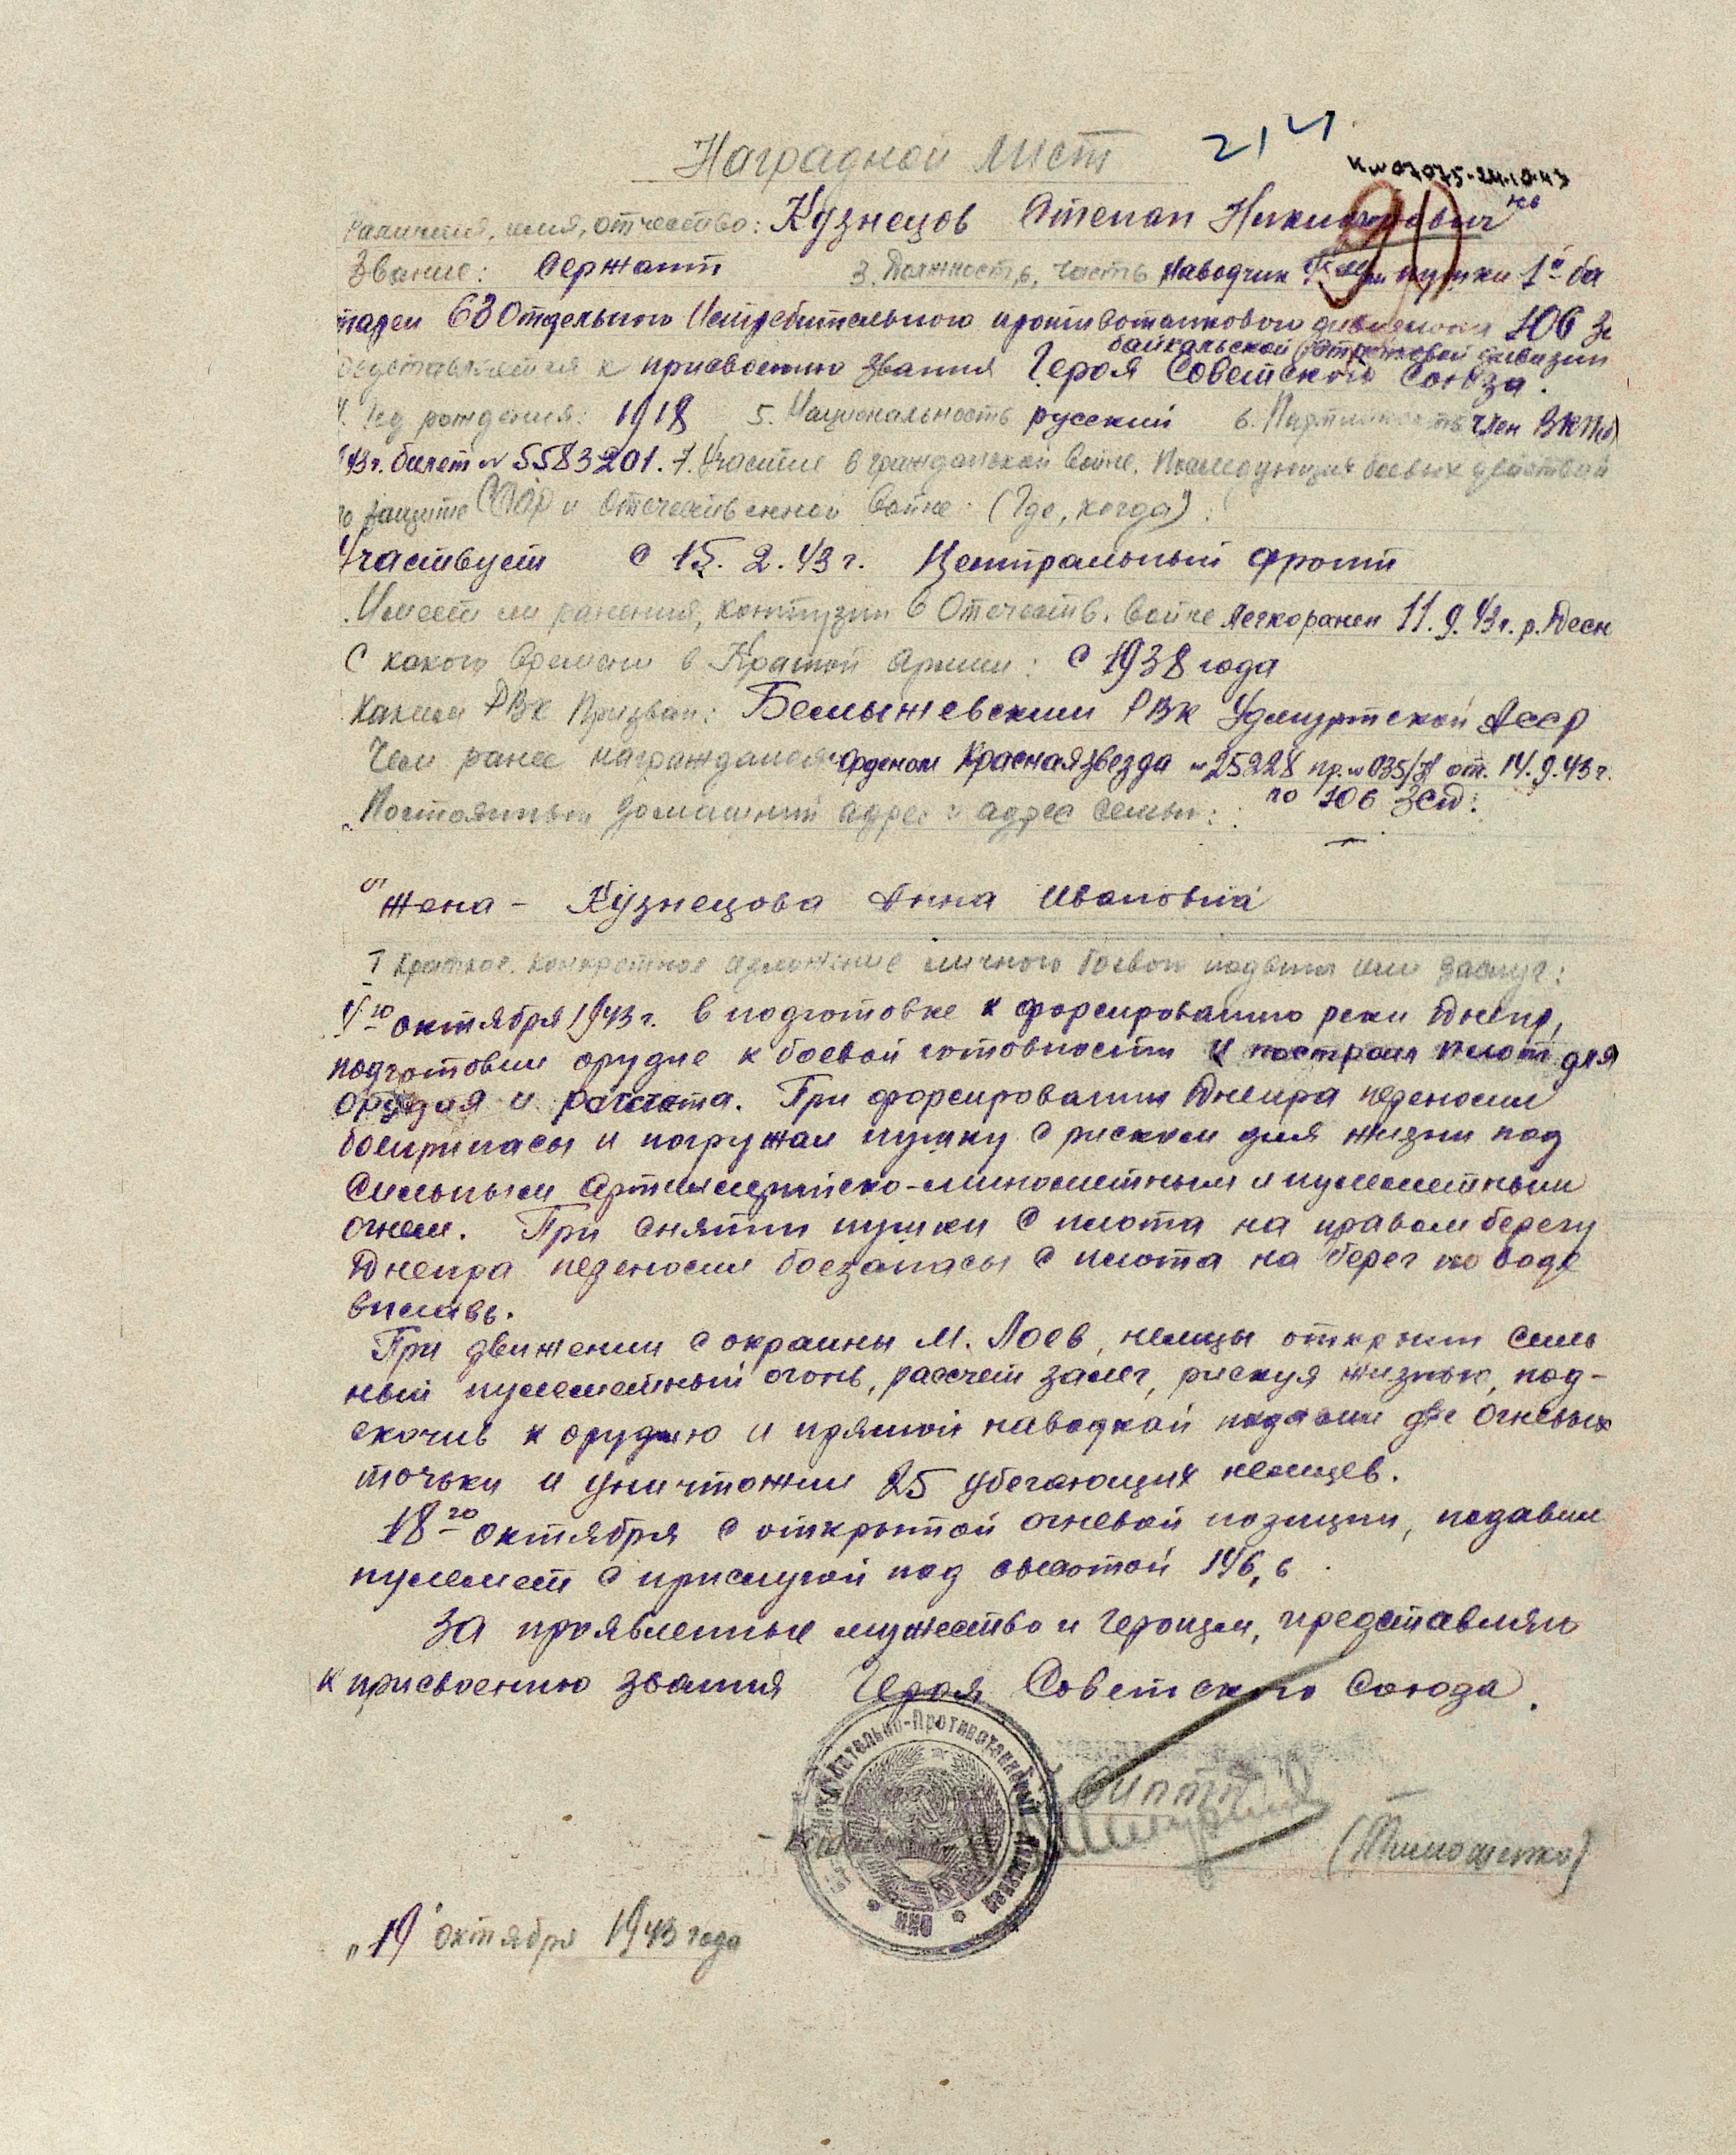 214
Наградной лист
К № 07075-24.10.43
Фамилия, имя, отчество: Кузнецов Степан
Звание: Сержант 3. Должность, часть Наводчик пушки 1й ба
тареи 63 Отдельного Истребительного противотанкового дивизиона 106 За
байкальской Стрелковой дивизии
редставляется к присвоению звания Героя Советского Союза.
4. Год рождения: 1918 5. Национальность русский 6. Партийность член ВКП(б)
43 г. билет № 5583201. 7. Участие в гражданской войне. Последующих боевых действий
по защите СССР и отечественной войне. (Где, когда):
Участвует с 15. 2. 43 г. Центральный фронт
Имеет ли ранения, контузии в Отечеств. войне легкоранен 11. 9. 43 г. р. Десн
С какого времени в Красной армии: с 1938 года
Каким РВК Призван: РВК Удмуртской АССР
Чем ранее награждался Орденом Красная звезда № 25228 пр. № 035/Н от. 14. 9. 43 г.
по 106 ЗСД.
Постоянный домашний адрес и адрес семьи:
Жена – Кузнецова Анна Ивановна
Краткое, конкретное изложение личного боевого подвига или заслуг:
октября 1943 г. в подготовке к форсированию реки Днепр,
подготовил орудие к боевой готовности и построил плот для
орудия и расчета. При форсировании Днепра переносил
боеприпасы и погружал пушку с риском для жизни под
Сильным Артиллерийско-минометным и пулеметным
огнем. При снятии пушки с плота на правом берегу
Днепра переносил боезапасы с плота на берег по воде
вплавь.
При движении с окраины м. Лоев, немцы открыли силь
ный пулеметный огонь, рассчет залег, рискуя жизнью, под-
скочив к орудию и прямой наводкой подавил две огневых
точьки и уничтожил 25 убегающих немцев.
18го октября с открытой огневой позиции, подавил
пулемет с прислугой под высотой 146,6
За проявленные мужество и героизм, представляю
к присвоению звания Героя Советского Союза.
Истребительно-Противотанковый
(Тимошенко)
"19" октября 1943 года